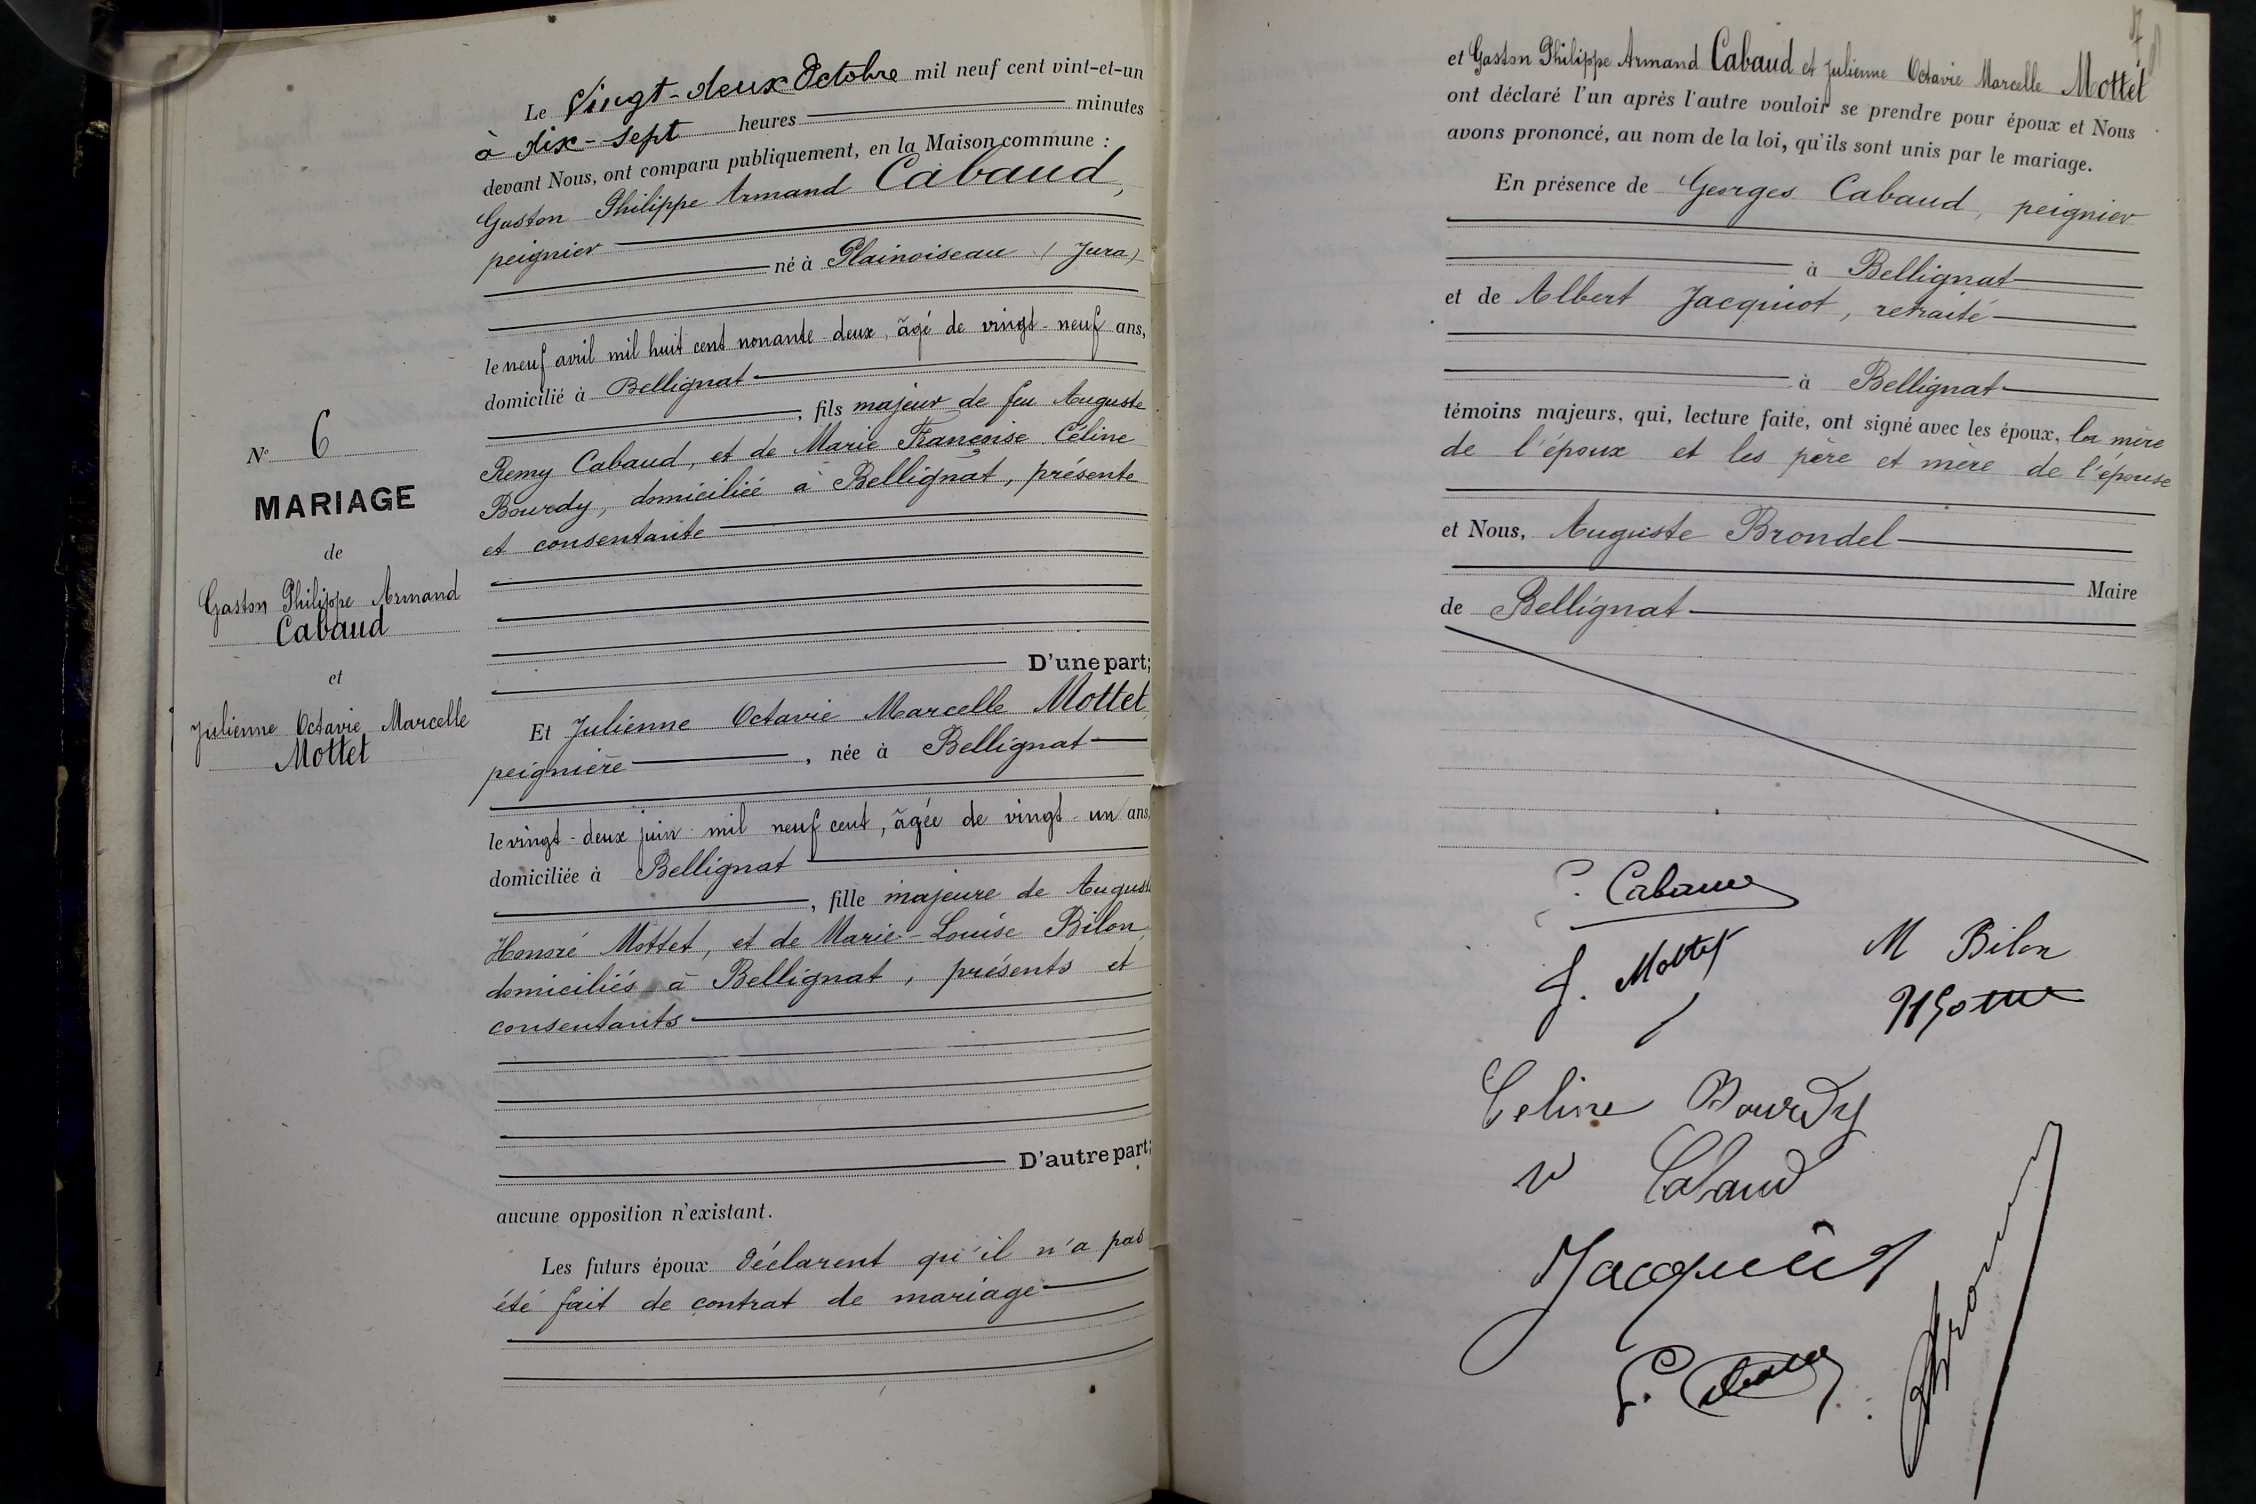 Le Vingt-deux Octobre mil neuf cent vint-et-un
à dix-sept heures minutes
devant Nous, ont comparu publiquement, en la Maison commune :
Gaston Philippe Armand Cabaud,
peignier
né à Plainoiseau (Jura)
le neuf avril mil huit cent nonante deux, âgé de vingt-neuf ans,
domicilié à Bellignat
, fils majeur de feu Auguste
Remy Cabaud, et de Marie Françoise Céline
Bourdy, domiciliée à Bellignat, présente
et consentante
N° 6
MARIAGE
de
Gaston Philippe Armand
Cabaud
et
Julienne Octavie Marcelle
Mottet
D'une part;
Et Julienne Octavie Marcelle Mottet
peignière, née à Bellignat
le vingt-deux juin mil neuf cent, âgée de vingt-un ans
domiciliée à Bellignat
, fille majeure de Auguste
Honoré Mottet, et de Marie-Louise Bilon,
domiciliés à Bellignat, présents et
consentants
D'autre part;
aucune opposition n'existant.
Les futurs époux déclarent qu'il n'a pas
été fait de contrat de mariage
et Gaston Philippe Armand Cabaud et Julienne Octavie Marcelle Mottet
ont déclaré l'un après l'autre vouloir se prendre pour époux et Nous
avons prononcé, au nom de la loi, qu'ils sont unis par le mariage.
En présence de Georges Cabaud, peignier
à Bellignat
et de Albert Jacquiot, retraité
à Bellignat
témoins majeurs, qui, lecture faite, ont signé avec les époux, la mère
de l'époux et les père et mère de l'épouse
et Nous, Auguste Brondel
Maire
de Bellignat
Cabaud
J. Mottet
M Bilon
Celine Bourdy
v Cabaud
Jacquiot